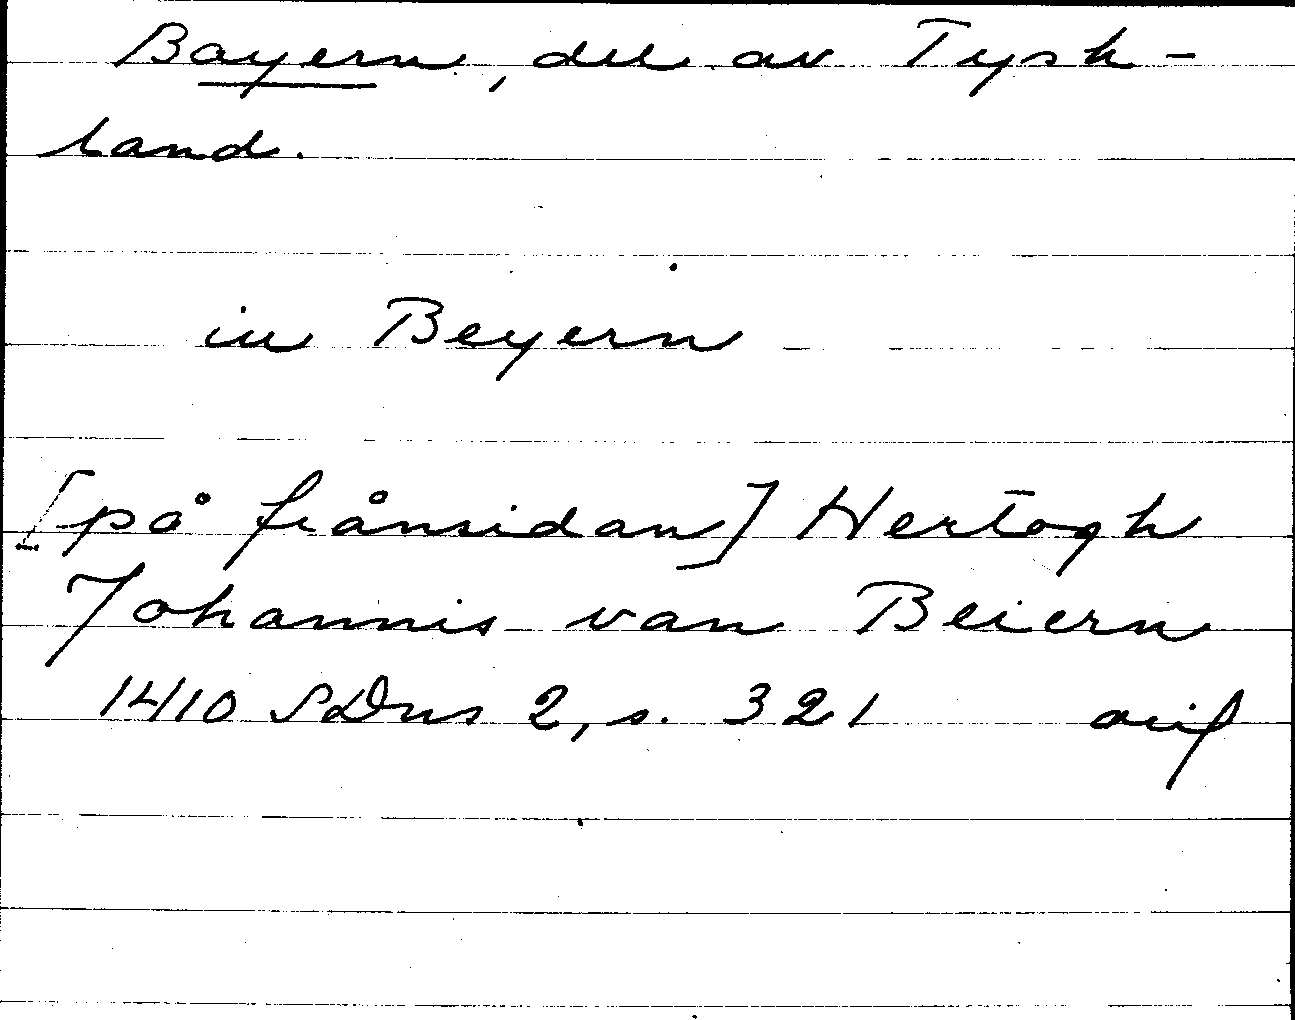 Bayern, del av Tysk-
land.
in Beyern
[på frånsidan] Hertogh
Johannis van Beiern
1410 SDns 2, s. 321 avskr